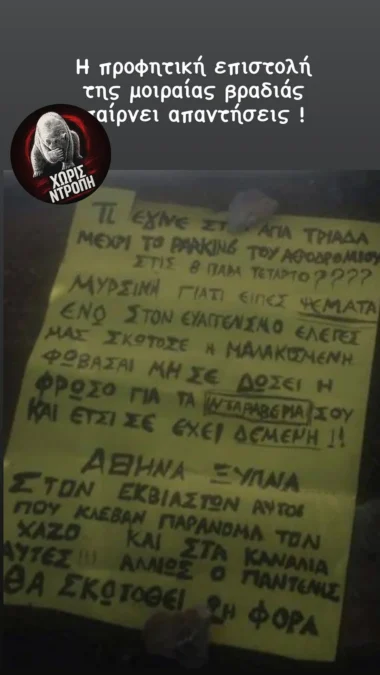 Η προφητική επιστολή
της μοιραίας βραδιάς
παίρνει απαντήσεις !
ΧΩΡΙΣ
ΝΤΡΟΠΗ
ΤΙ ΕΓΙΝΕ ΣΤ ΑΓΙΑ ΤΡΙΑΔΑ
ΜΕΧΡΙ ΤΟ PARKING ΤΟΥ ΑΕΡΟΔΡΟΜΙΟΥ
ΣΤΙΣ 8 ΠΑΡΑ ΤΕΤΑΡΤΟ????
ΜΥΡΣΙΝΗ ΓΙΑΤΙ ΕΙΠΕΣ ΨΕΜΑΤΑ
ΕΝΩ ΣΤΟΝ ΕΥΑΓΓΕΝΙΣΜΟ ΕΛΕΓΕΣ
ΜΑΣ ΣΚΟΤΩΣΕ Η ΜΑΛΑΚΙΣΜΕΝΗ
ΦΩΒΑΣΑΙ ΜΗ ΣΕ ΔΩΣΕΙ Η
ΦΡΟΣΟ ΓΙΑ ΤΑ ΝΤΑΡΑΒΕΡΙΑ ΣΟΥ
ΚΑΙ ΕΤΣΙ ΣΕ ΕΧΕΙ ΔΕΜΕΝΗ !!
ΑΘΗΝΑ ΞΥΠΝΑ
ΣΤΟΝ ΕΚΒΙΑΣΤΩΝ ΑΥΤΟΙ
ΠΟΥ ΚΛΕΒΑΝ ΠΑΡΑΝΟΜΑ ΤΟΝ
ΧΑΖΟ ΚΑΙ ΣΤΑ ΚΑΝΑΛΙΑ
ΑΥΤΕΣ !!! ΑΛΛΙΩΣ Ο ΠΑΝΤΕΛΗΣ
ΘΑ ΣΚΩΤΟΘΕΙ 2Η ΦΟΡΑ